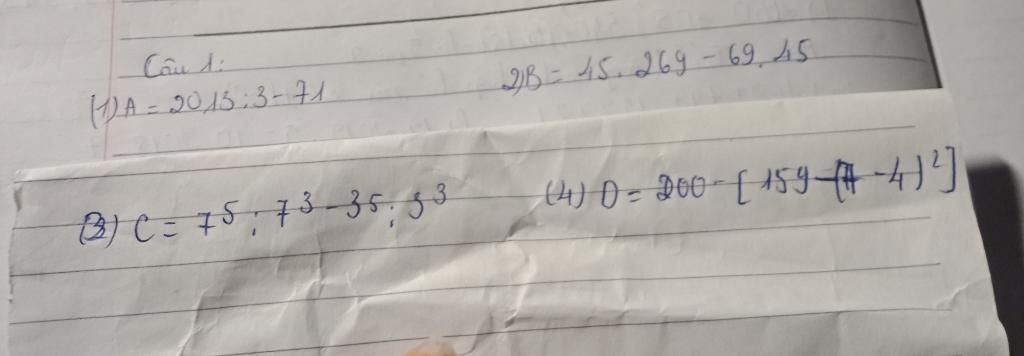 Câu 1:
(1) A = 2013 : 3 - 71 2) B = 45 . 269 - 69 . 45
(3) C = 7⁵ : 7³ - 35 : 3³ (4) D = 200 - [ 159 - ( - 4)² ]